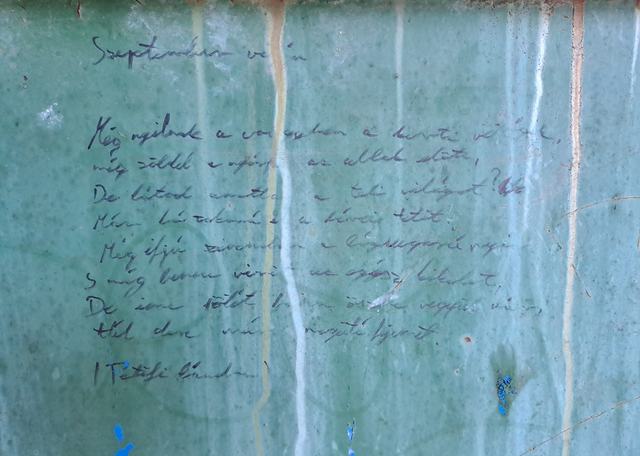 Szeptember végén
Még nyílnak a völgyben a kerti virágok,
még zöldel a nyárfa az ablak előtt,
De látod amottan a téli világot?
Már hó takará el a bérci tetőt.
Még ifjú szivemben a lángsugarú nyár
S még benne virít az egész kikelet,
De íme sötét hajam őszbe vegyül már,
tél dere már megüté fejemet.